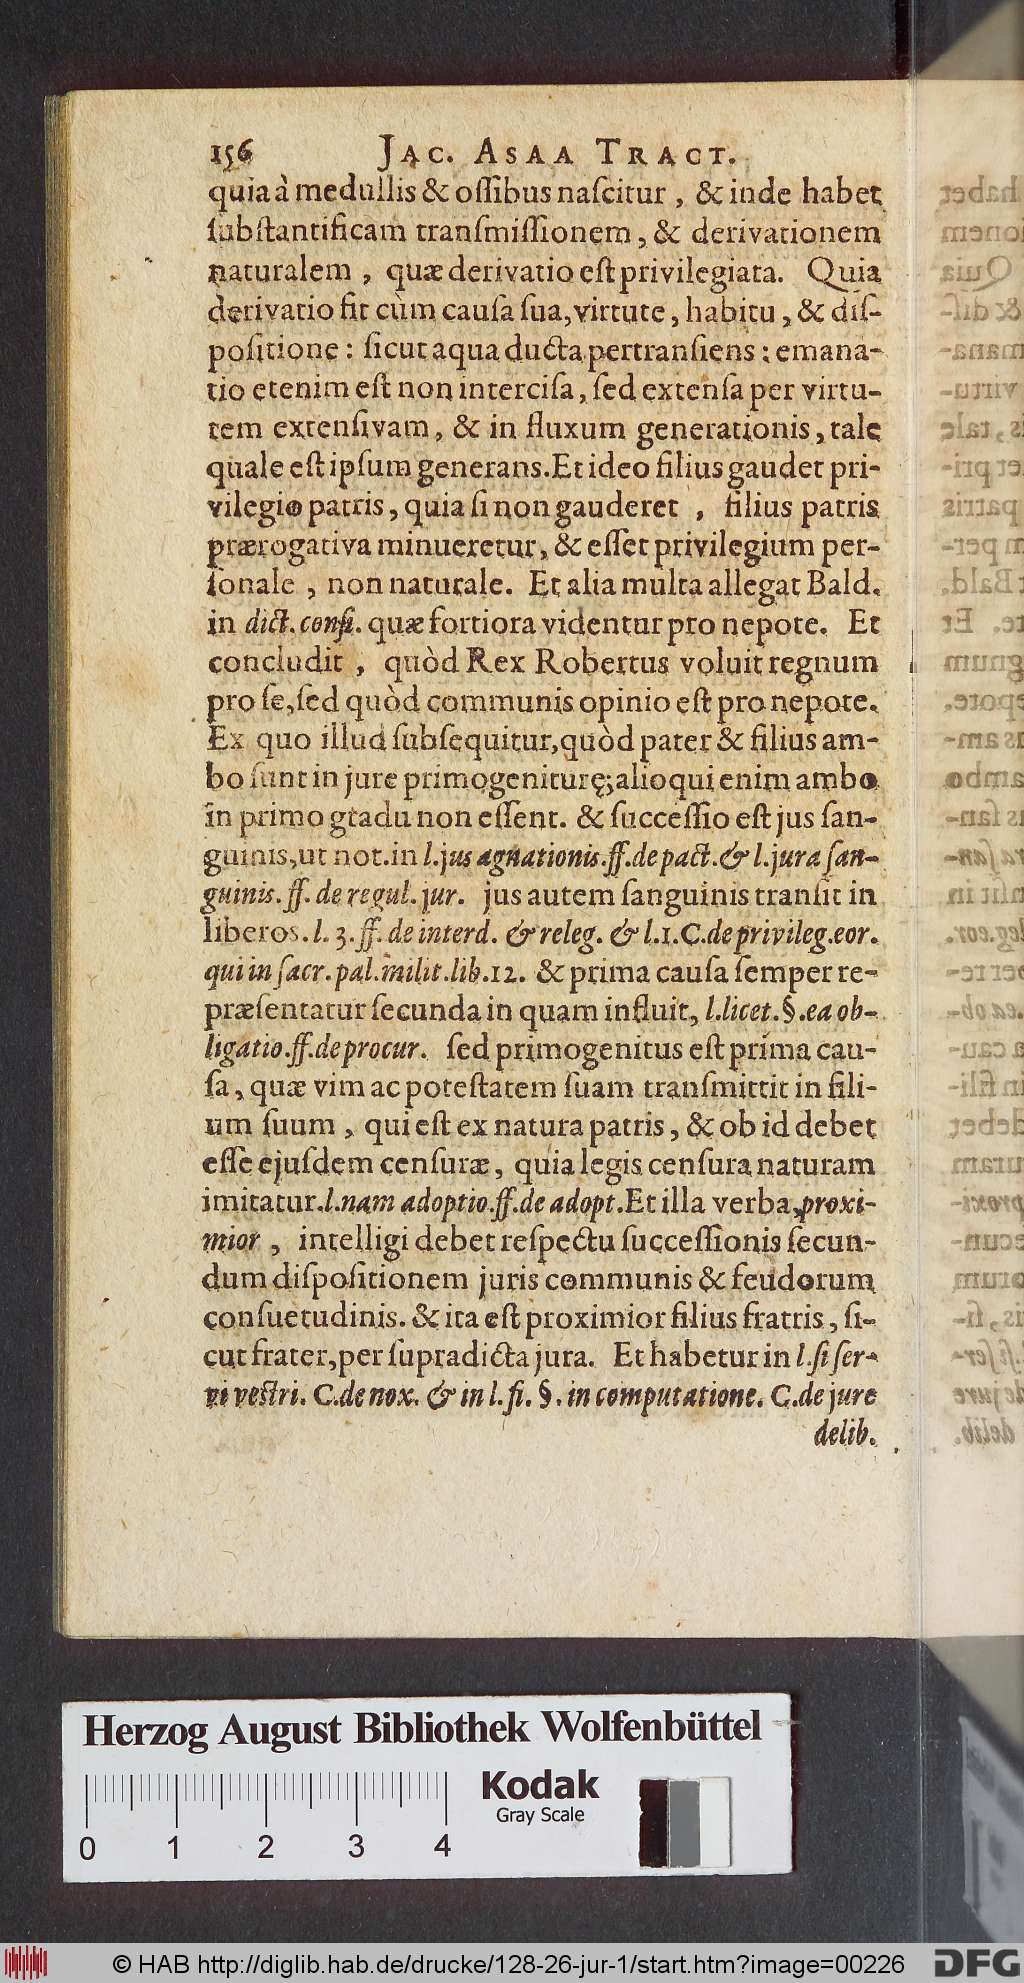 156 JAC. ASAA TRACT.
quia à medullis & oſſibus naſcitur, & inde habet
ſubſtantificam tranſmiſſionem, & derivationem
naturalem, quæ derivatio eſt privilegiata. Quia
derivatio fit cùm cauſa ſua, virtute, habitu, & diſ-
poſitione: ſicut aqua ducta pertranſiens: emana-
tio etenim eſt non interciſa, ſed extenſa per virtu-
tem extenſivam, & in fluxum generationis, tale
quale eſt ipſum generans. Et ideo filius gaudet pri-
vilegio patris, quia ſi non gauderet, filius patris
prærogativa minueretur, & eſſet privilegium per-
ſonale, non naturale. Et alia multa allegat Bald.
in dict. conſi. quæ fortiora videntur pro nepote. Et
concludit, quòd Rex Robertus voluit regnum
pro ſe, ſed quòd communis opinio eſt pro nepote.
Ex quo illud ſubſequitur, quòd pater & filius am-
bo ſunt in jure primogeniturę; alioqui enim ambo
in primo gtadu non eſſent. & ſucceſſio eſt jus ſan-
guinis, ut not. in l. jus agnationis. ff. de pact. & l. jura ſan-
guinis. ff. de regul. jur. jus autem ſanguinis tranſit in
liberos. l. 3. ff. de interd. & releg. & l. 1. C. de privileg. eor.
qui in ſacr. pal. milit. lib. 12. & prima cauſa ſemper re-
præſentatur ſecunda in quam influit, l. licet. §. ea ob-
ligatio. ff. de procur. ſed primogenitus eſt prima cau-
ſa, quæ vim ac poteſtatem ſuam tranſmittit in fili-
um ſuum, qui eſt ex natura patris, & ob id debet
eſſe ejuſdem cenſuræ, quia legis cenſura naturam
imitatur. l. nam adoptio. ff. de adopt. Et illa verba, proxi-
mior, intelligi debet reſpectu ſucceſſionis ſecun-
dum diſpoſitionem juris communis & feudorum
conſuetudinis. & ita eſt proximior filius fratris, ſi-
cut frater, per ſupradicta jura. Et habetur in l. ſi ſer-
vi veſtri. C. de nox. & in l. fi. §. in computatione. C. de jure
delib.
Herzog August Bibliothek Wolfenbüttel
Kodak
Gray Scale
0 1 2 3 4
© HAB http://diglib.hab.de/drucke/128-26-jur-1/start.htm?image=00226
DFG